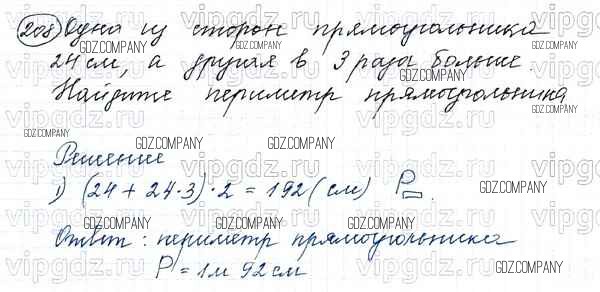 208) Одна из сторон прямоугольника
24 см, а другая в 3 раза больше.
Найдите периметр прямоугольника
Решение
1) (24 + 24·3)·2 = 192 (см) P▭.
Ответ: периметр прямоугольника
P = 1м 92 см